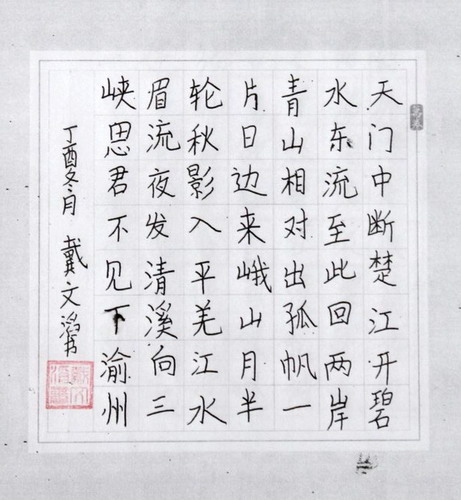 天门中断楚江开碧
水东流至此回两岸
青山相对出孤帆一
片日边来峨山月半
轮秋影入平羌江水
眉流夜发清溪向三
峡思君不见下渝州
丁酉冬月 戴文书